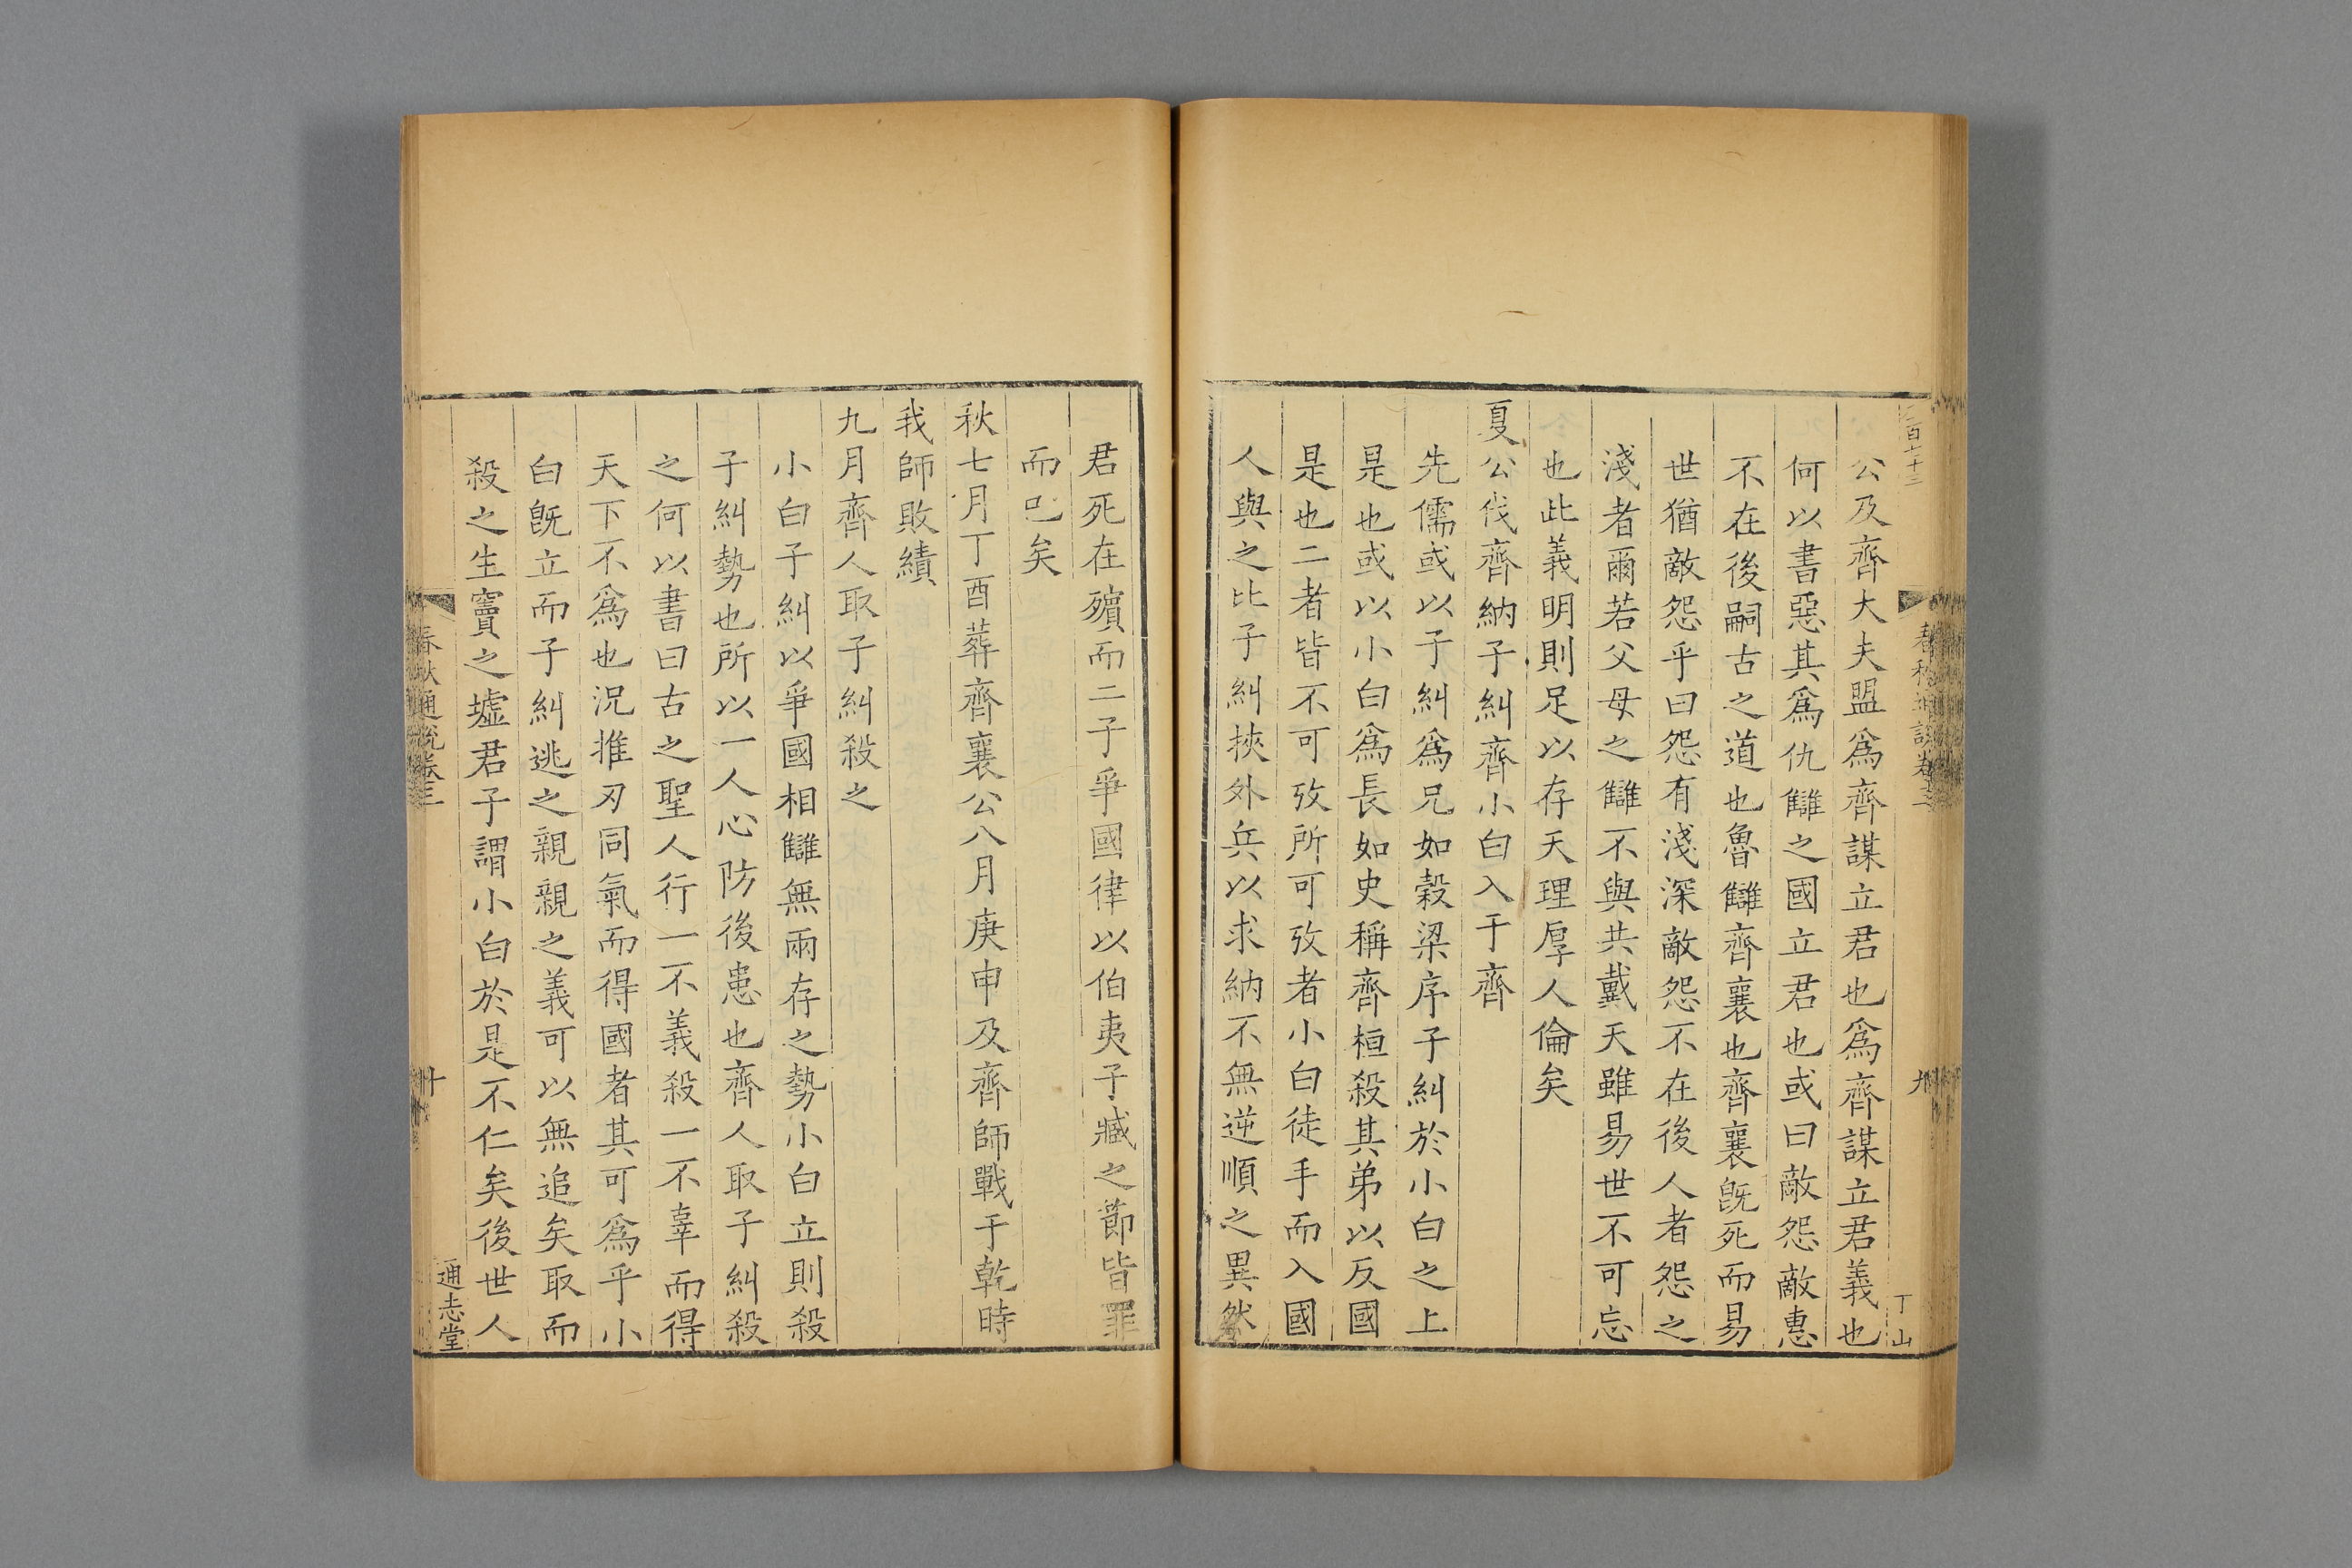 公及齊大夫盟爲齊謀立君也爲齊謀立君義也
何以書惡其爲仇讎之國立君也或曰敵怨敵惠
不在後嗣古之道也魯讎齊襄也齊襄旣死而易
世猶敵怨乎曰怨有淺深敵怨不在後人者怨之
淺者爾若父母之讎不與共戴天雖易世不可忘
也此義明則足以存天理厚人倫矣
夏公伐齊納子糾齊小白入于齊
先儒或以子糾爲兄如穀梁序子糾於小白之上
是也或以小白爲長如史稱齊桓殺其弟以反國
是也二者皆不可攷所可攷者小白徒手而入國
人與之比子糾挾外兵以求納不無逆順之異然
九
丁山
君死在殯而二子爭國律以伯夷子臧之節皆罪
而已矣
秋七月丁酉葬齊襄公八月庚申及齊師戰于乾時
我師敗績
九月齊人取子糾殺之
小白子糾以爭國相讎無兩存之勢小白立則殺
子糾勢也所以一人心防後患也齊人取子糾殺
之何以書曰古之聖人行一不義殺一不辜而得
天下不爲也況推刃同氣而得國者其可爲乎小
白旣立而子糾逃之親親之義可以無追矣取而
殺之生竇之墟君子謂小白於是不仁矣後世人
春秋通說卷三
十
通志堂